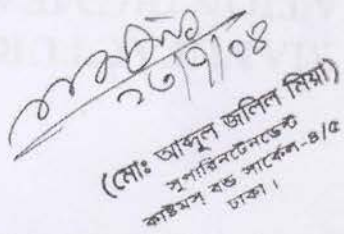 ২৩/৭/০৪
(মোঃ আব্দুল জলিল মিয়া)
সুপারিনটেনডেন্ট
কাষ্টমস্ বন্ড সার্কেল-৪/৫
ঢাকা।